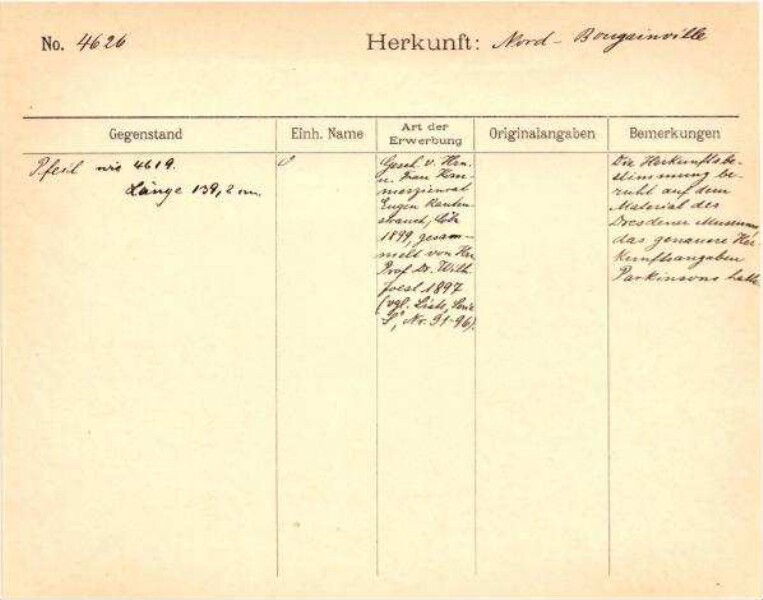 No. 4626
Herkunft: Nord-Bougainville
Gegenstand
Einh. Name
Art der
Erwerbung
Originalangaben
Bemerkungen
Pfeil wie 4619.
Länge 139,2 cm.
Gesch. v. Hrn.
u. Frau Kom-
merzienrat
Eugen Rauten-
strauch, Cöln
1899, gesam-
melt von Hrn
Prof. Dr. Wilh.
Joest 1897
(vgl. Liste, Serie
S, Nr. 91-96).
Die Herkunftsbe-
stimmung be-
ruht auf dem
Material des
Dresdener Museums,
das genauere Her-
kunftsangaben
Parkinsons hatte.